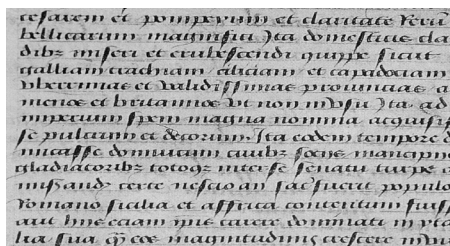 cesarem et pompeium et claritate rerū
bellicarum magnifici Ita domesticis cla
dibꝫ miseri et erubescendi quippe sicut
galliam trachiam ciliciam et capadociam
vberrimas et validissimas prouincias a
menos et britannos vt non in vsu Ita ad
imperium spem magna nomina acquisis
se pulcrum et decorum Ita eodem tempore d
micasse domi cum ciuibꝫ socijs mancipijs
gladiatoribꝫ totoqꝫ inter se senatu turpe e
certe nescio an satius fuerit populo
Romano sicilia et affrica contentum fuiss
aut hijs eciam ipse carere dominanti in yta
lia sua qͣꝫ eo magnitudinis crescere